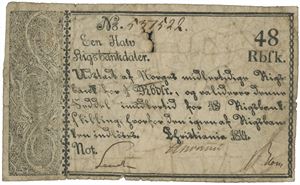 No. 537522.
Een Halv 48
Rigsbankdaler. Rbsk.
Udstedt af Norges midlertidige Rigs
bank for ½ Rbdlr., og validerer denne
Seddel imidlertid for 48 Rigsbank
skilling, hvorfor den igjen af Rigsban
ken indløses. Christiania 1814.
Not.